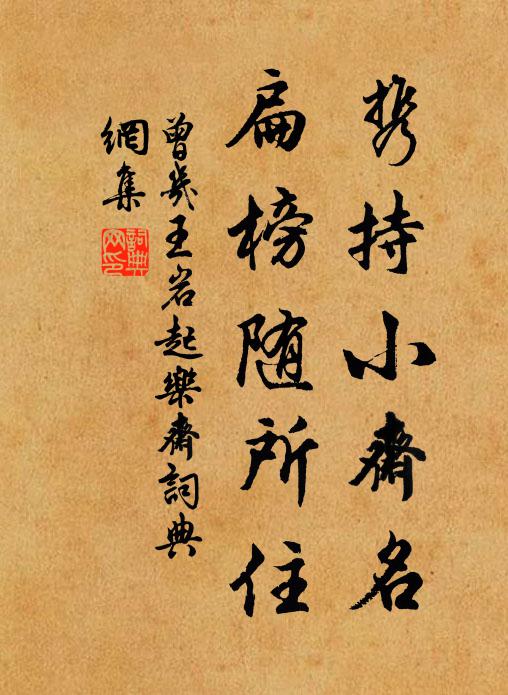 携持小齋名
扁榜随所住
曾幾王岩起樂齋詞典
網集
詞典網印